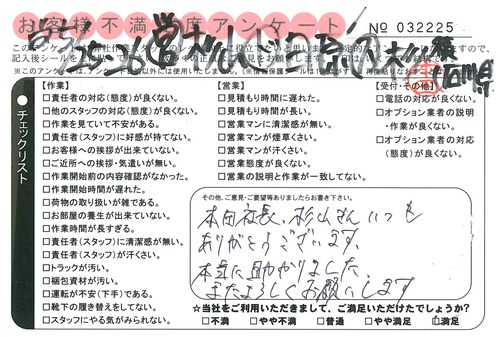 お客様不満度アンケート
No 032225
【作業】
□責任者の対応(態度)が良くない。
□他のスタッフの対応(態度)が良くない。
□作業を見ていて不安がある。
□責任者(スタッフ)に好感が持てない。
□お客様への挨拶が出来ていない。
□ご近所への挨拶・気遣いが無い。
□作業開始前の内容確認がなかった。
□作業開始時間が遅れた。
□荷物の取り扱いが雑である。
□お部屋の養生が出来ていない。
□作業時間が長すぎる。
□責任者(スタッフ)に清潔感が無い。
□責任者(スタッフ)が汗くさい。
□トラックが汚い。
□梱包資材が汚い。
□運転が不安(下手)である。
□靴下の履き替えをしてない。
□スタッフにやる気がみられない。
チェックリスト
【営業】
□見積もり時間に遅れた。
□見積もり時間が長い。
□営業マンに清潔感が無い。
□営業マンが煙草くさい。
□営業マンが汗くさい。
□営業態度が良くない。
□営業の説明と作業が一致してない。
【受付・その他】
□電話の対応が良くない。
□オプション業者の説明
・作業が良くない。
□オプション業者の対応
(態度)が良くない。
その他、ご意見・ご要望等ありましたらお書き下さい。
本田社長、杉山さん いつも
ありがとうございます。
本当に助かりました。
またよろしくお願いします
☆当社をご利用いただきまして、ご満足いただけたでしょうか?
□不満 □やや不満 □普通 □やや満足 □満足